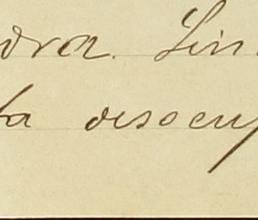 dra. Sin
ta desocup